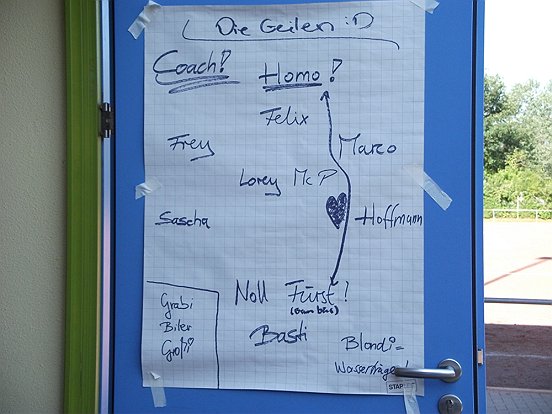 Die Geilen :D
Coach!
Homo!
Felix
Frey
Marco
Lorey McP
Sascha
Hoffmann
Noll Fürst!
Basti
Grabi
Biler
Großi
Blondi =
Wasserträger!
STAP